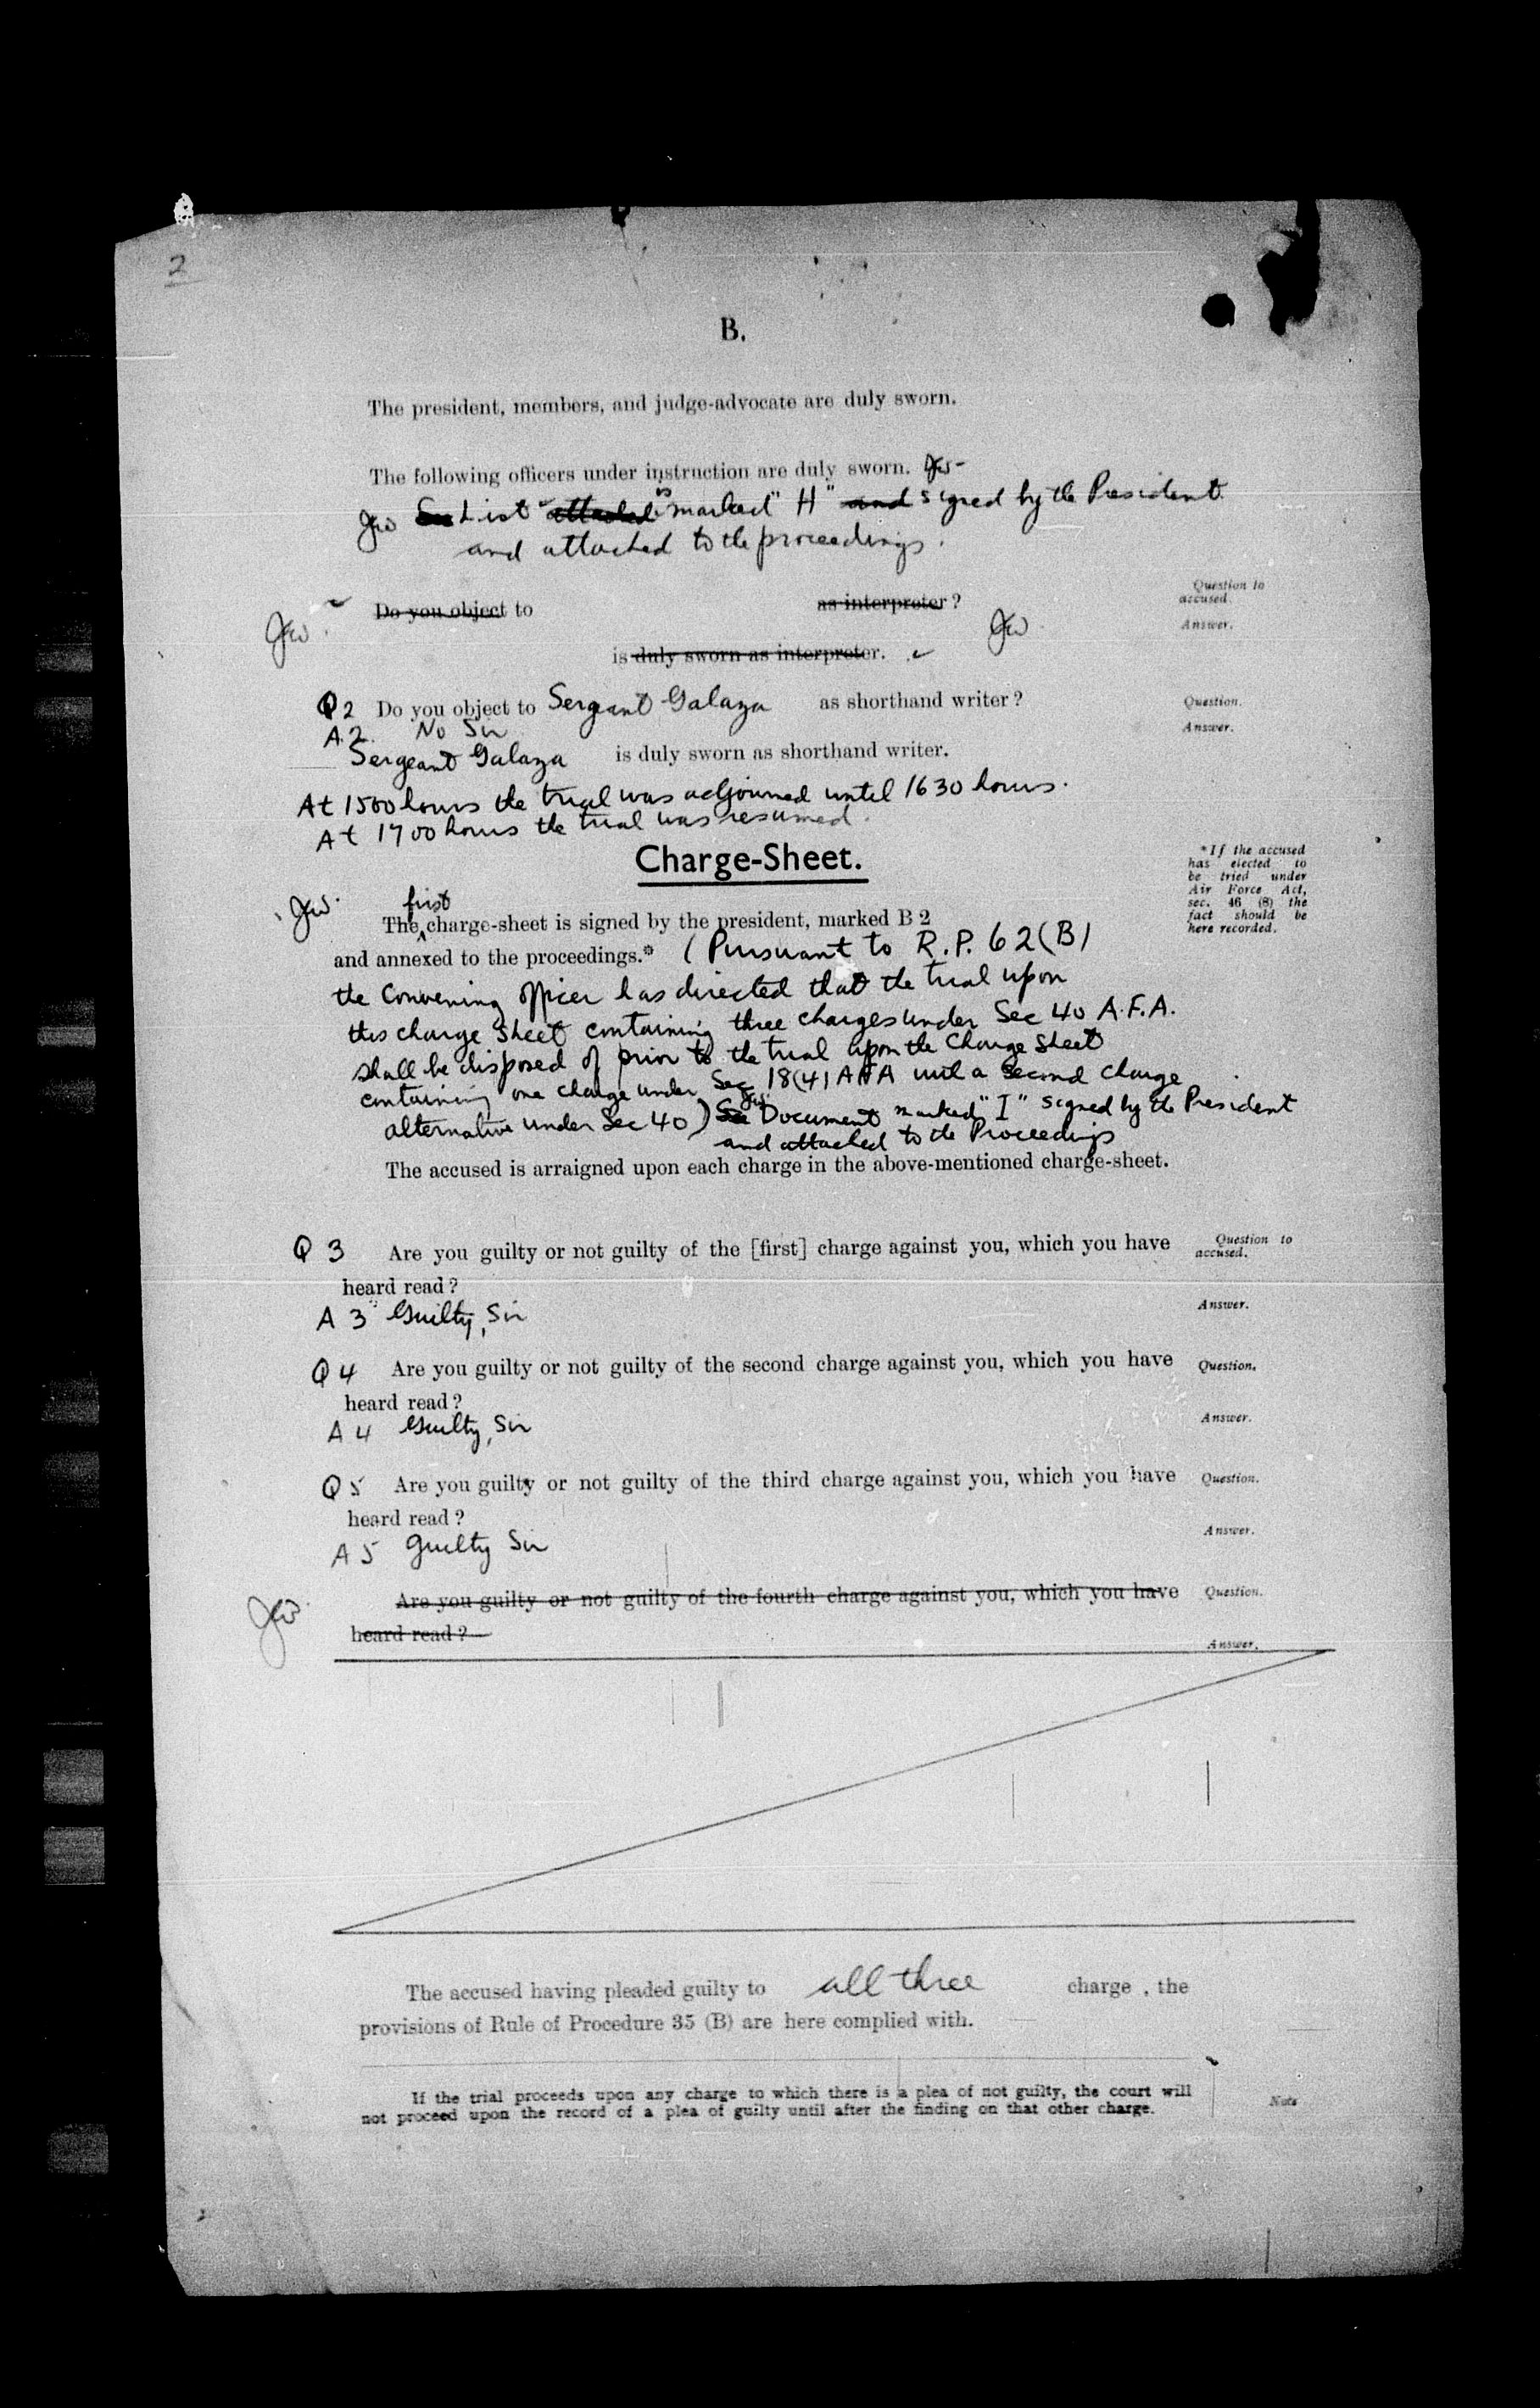 2
B.
The president, members, and judge-advocate are duly sworn.
The following officers under instruction are duly sworn. JW
JW See List attached is marked "H" and signed by the President
and attached to the proceedings.
Do you object to as interpreter? Question to accused.
JW JW Answer.
is duly sworn as interpreter.
Q2 Do you object to Sergeant Galaza as shorthand writer? Question.
A.2. No Sir Answer.
Sergeant Galaza is duly sworn as shorthand writer.
At 1500 hours the trial was adjourned until 1630 hours.
At 1700 hours the trial was resumed.
Charge-Sheet.
*If the accused
has elected to
be tried under
Air Force Act,
sec. 46 (8) the
fact should be
here recorded.
JW first
The charge-sheet is signed by the president, marked B 2
and annexed to the proceedings.* (Pursuant to R.P. 62(B)
the Convening Officer has directed that the trial upon
this charge sheet containing three charges under Sec 40 A.F.A.
shall be disposed of prior to the trial upon the Charge Sheet
containing one charge under Sec 18(4) AFA with a second charge
alternative under Sec 40) See Document marked "I" signed by the President
and attached to the Proceedings
The accused is arraigned upon each charge in the above-mentioned charge-sheet.
Q 3 Are you guilty or not guilty of the [first] charge against you, which you have Question to accused.
heard read?
A 3 Guilty, Sir Answer.
Q 4 Are you guilty or not guilty of the second charge against you, which you have Question.
heard read?
A 4 Guilty, Sir Answer.
Q 5 Are you guilty or not guilty of the third charge against you, which you have Question.
heard read?
A 5 Guilty Sir Answer.
JW Are you guilty or not guilty of the fourth charge against you, which you have Question.
heard read?
Answer.
The accused having pleaded guilty to all three charge , the
provisions of Rule of Procedure 35 (B) are here complied with.
If the trial proceeds upon any charge to which there is a plea of not guilty, the court will Note
not proceed upon the record of a plea of guilty until after the finding on that other charge.